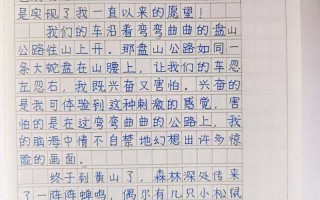 是实现了我一直以来的愿望！
我们的车沿着弯弯曲曲的盘山
公路往山上开。那盘山公路如同一
条大蛇盘在山腰上，让我们的车忽
左忽右，我既兴奋又害怕。兴奋的
是我可体验到这种刺激的感觉，害
怕的是在这弯弯曲曲的公路上，我
的脑海中情不自禁地幻想出许多惊
险的画面。
终于到黄山了，森林深处传来
了一阵阵蝉鸣，偶尔有几只小松鼠